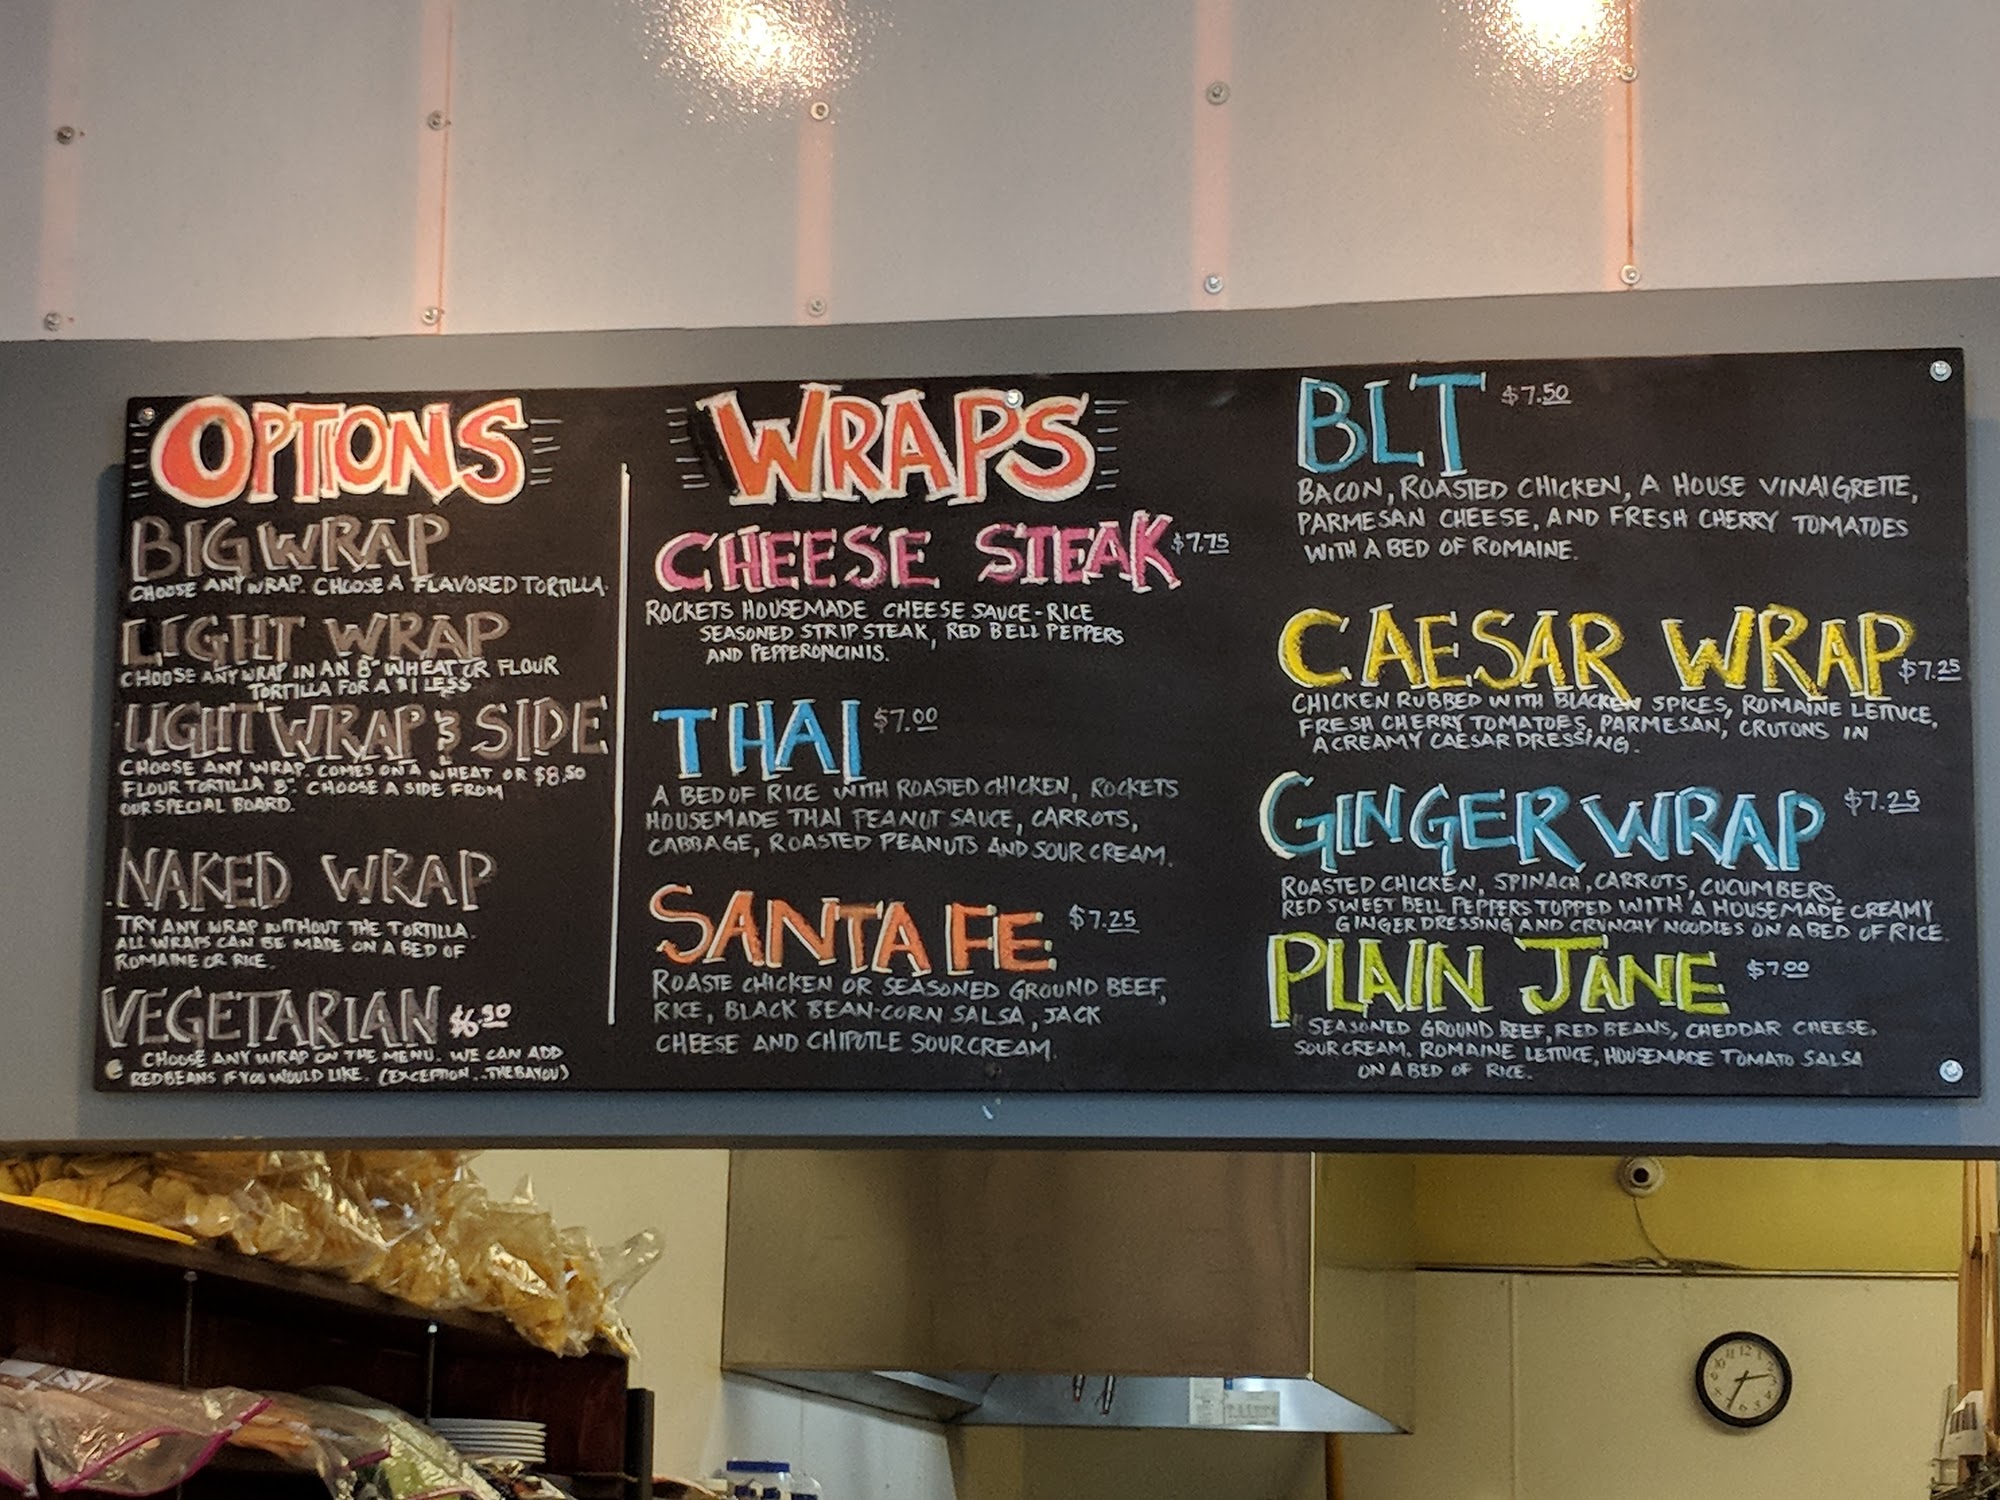 OPTIONS
BIG WRAP
CHOOSE ANY WRAP. CHOOSE A FLAVORED TORTILLA.
LIGHT WRAP
CHOOSE ANY WRAP IN AN 8" WHEAT OR FLOUR
TORTILLA FOR A $1 LESS
LIGHT WRAP & SIDE
CHOOSE ANY WRAP. COMES ON A WHEAT OR $8.50
FLOUR TORTILLA 8". CHOOSE A SIDE FROM
OUR SPECIAL BOARD.
NAKED WRAP
TRY ANY WRAP WITHOUT THE TORTILLA.
ALL WRAPS CAN BE MADE ON A BED OF
ROMAINE OR RICE.
VEGETARIAN $6.90
CHOOSE ANY WRAP ON THE MENU. WE CAN ADD
RED BEANS IF YOU WOULD LIKE. (EXCEPTION..THE BAYOU)
WRAPS
CHEESE STEAK $7.75
ROCKETS HOUSEMADE CHEESE SAUCE-RICE
SEASONED STRIP STEAK, RED BELL PEPPERS
AND PEPPERONCINIS.
THAI $7.00
A BED OF RICE WITH ROASTED CHICKEN, ROCKETS
HOUSEMADE THAI PEANUT SAUCE, CARROTS,
CABBAGE, ROASTED PEANUTS AND SOUR CREAM.
SANTA FE $7.25
ROASTE CHICKEN OR SEASONED GROUND BEEF,
RICE, BLACK BEAN-CORN SALSA, JACK
CHEESE AND CHIPOTLE SOUR CREAM.
BLT $7.50
BACON, ROASTED CHICKEN, A HOUSE VINAIGRETTE,
PARMESAN CHEESE, AND FRESH CHERRY TOMATOES
WITH A BED OF ROMAINE.
CAESAR WRAP $7.25
CHICKEN RUBBED WITH BLACKEN SPICES, ROMAINE LETTUCE,
FRESH CHERRY TOMATOES, PARMESAN, CRUTONS IN
A CREAMY CAESAR DRESSING.
GINGER WRAP $7.25
ROASTED CHICKEN, SPINACH, CARROTS, CUCUMBERS,
RED SWEET BELL PEPPERS TOPPED WITH A HOUSEMADE CREAMY
GINGER DRESSING AND CRUNCHY NOODLES ON A BED OF RICE.
PLAIN JANE $7.00
SEASONED GROUND BEEF, RED BEANS, CHEDDAR CHEESE,
SOUR CREAM, ROMAINE LETTUCE, HOUSEMADE TOMATO SALSA
ON A BED OF RICE.